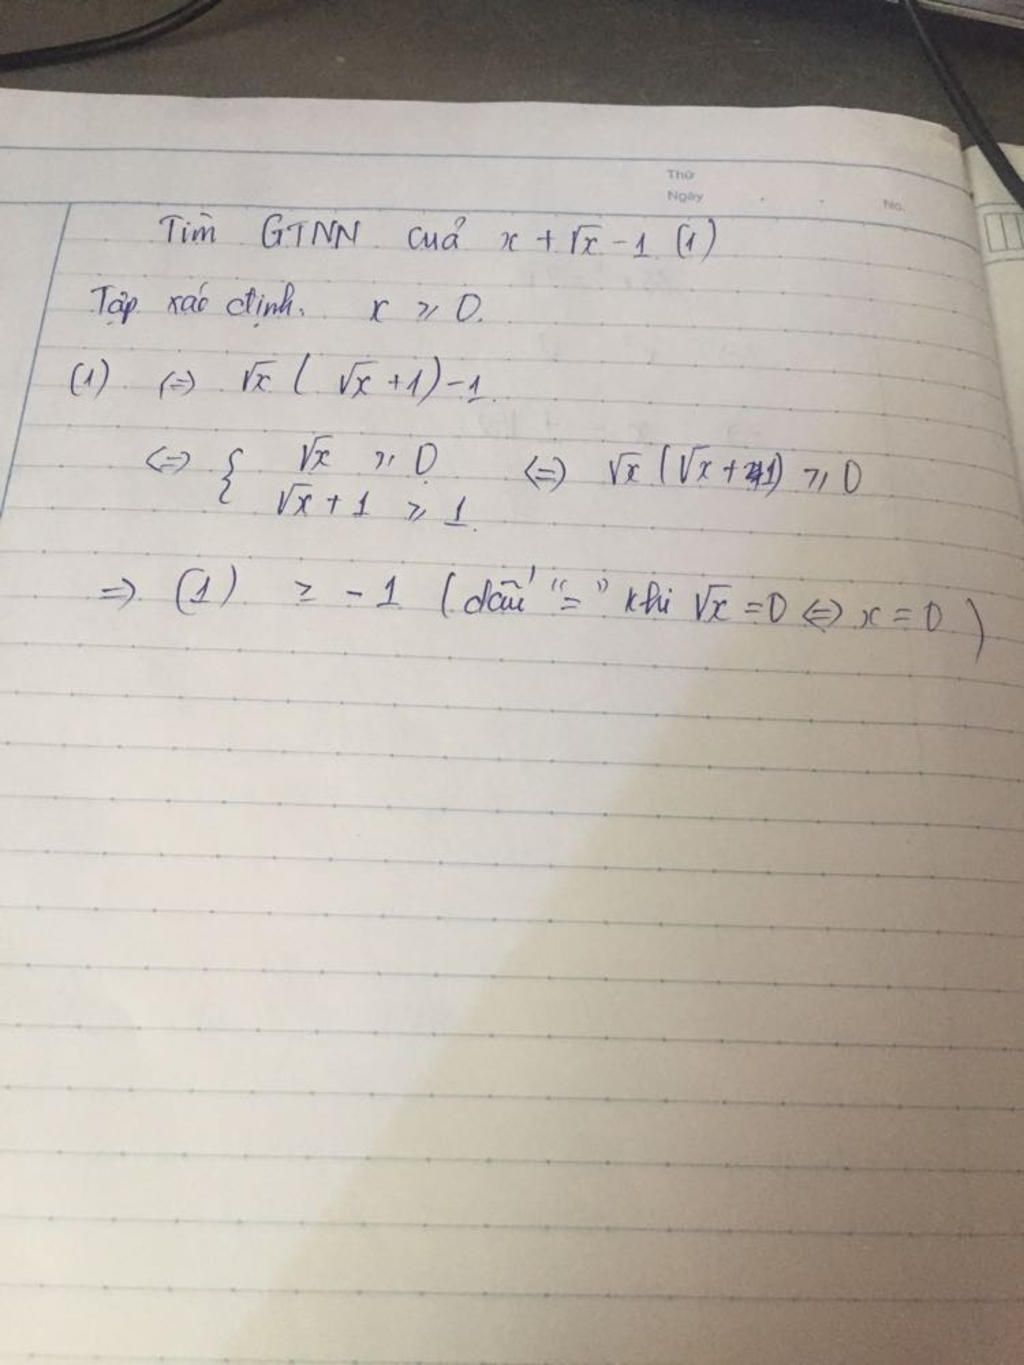 Thứ
Ngày
No.
Tìm GTNN của x + √x - 1 (1)
Tập xác định. x ⩾ 0.
(1) ⇔ √x ( √x + 1) - 1.
⇔ { √x ⩾ 0 ⇔ √x (√x + 1) ⩾ 0
√x + 1 ⩾ 1.
⇒ (1) ≥ - 1 ( dấu "=" khi √x = 0 ⇔ x = 0 )